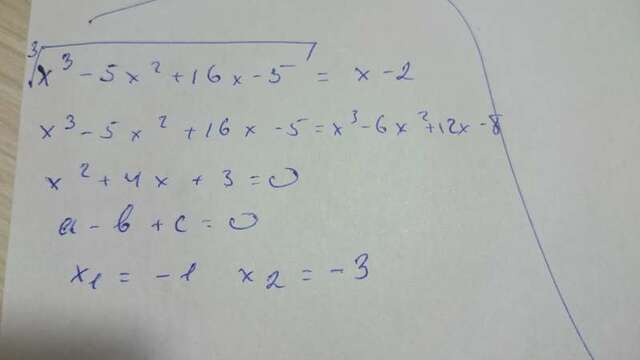 ∛(x³ - 5x² + 16x - 5) = x - 2
x³ - 5x² + 16x - 5 = x³ - 6x² + 12x - 8
x² + 4x + 3 = 0
a - b + c = 0
x₁ = -1 x₂ = -3